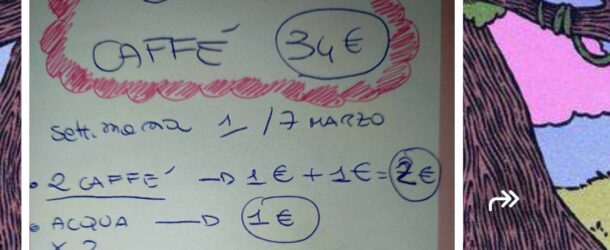 CAFFÉ 34 €
settimana 1/7 MARZO
• 2 CAFFÉ —D 1 € + 1 € = 2 €
• ACQUA —D 1 €
x 2